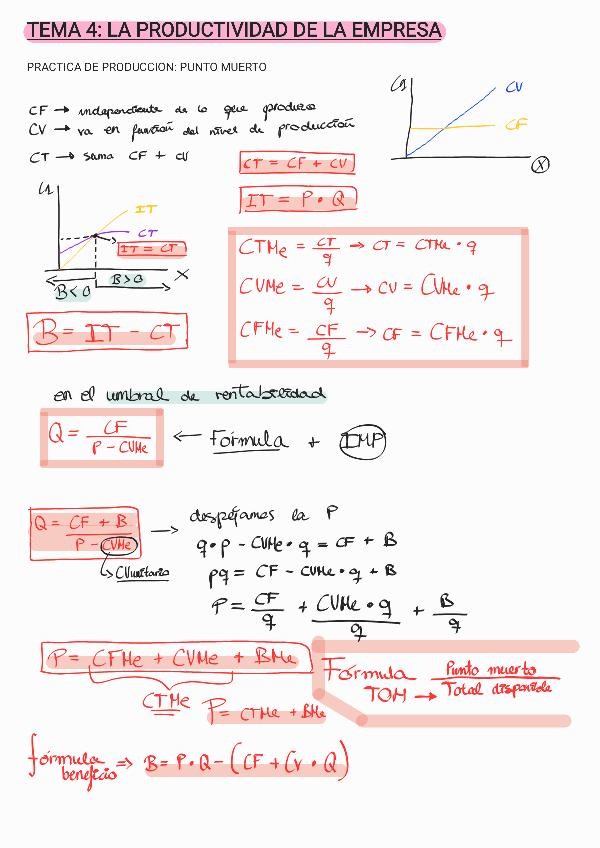 TEMA 4: LA PRODUCTIVIDAD DE LA EMPRESA
PRACTICA DE PRODUCCION: PUNTO MUERTO
CF → independiente de lo que produzco
CV → va en función del nivel de producción
CT → suma CF + CV
CV
CF
X
CT = CF + CV
IT = P · Q
IT
CT
IT = CT
X
B<0
B>0
B = IT - CT
CTMe = CT/q → CT = CTMe · q
CVMe = CV/q → CV = CVMe · q
CFMe = CF/q → CF = CFMe · q
en el umbral de rentabilidad
Q = CF / P - CVMe ← Fórmula + IMP
Q = CF + B / P - CVMe → despejamos la P
CVunitario
q·p - CVMe · q = CF + B
pq = CF - CVMe · q + B
P = CF/q + CVMe · q/q + B/q
P = CFMe + CVMe + BMe
CTMe P = CTMe + BMe
Fórmula TOM → Punto muerto / Total disponible
fórmula beneficio ⇒ B = P·Q - (CF + Cv · Q)